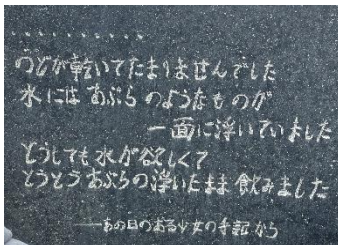 ..........
のどが乾いてたまりませんでした
水にはあぶらのようなものが
一面に浮いていました
どうしても水が欲しくて
とうとうあぶらの浮いたまま飲みました
——あの日のある少女の手記から